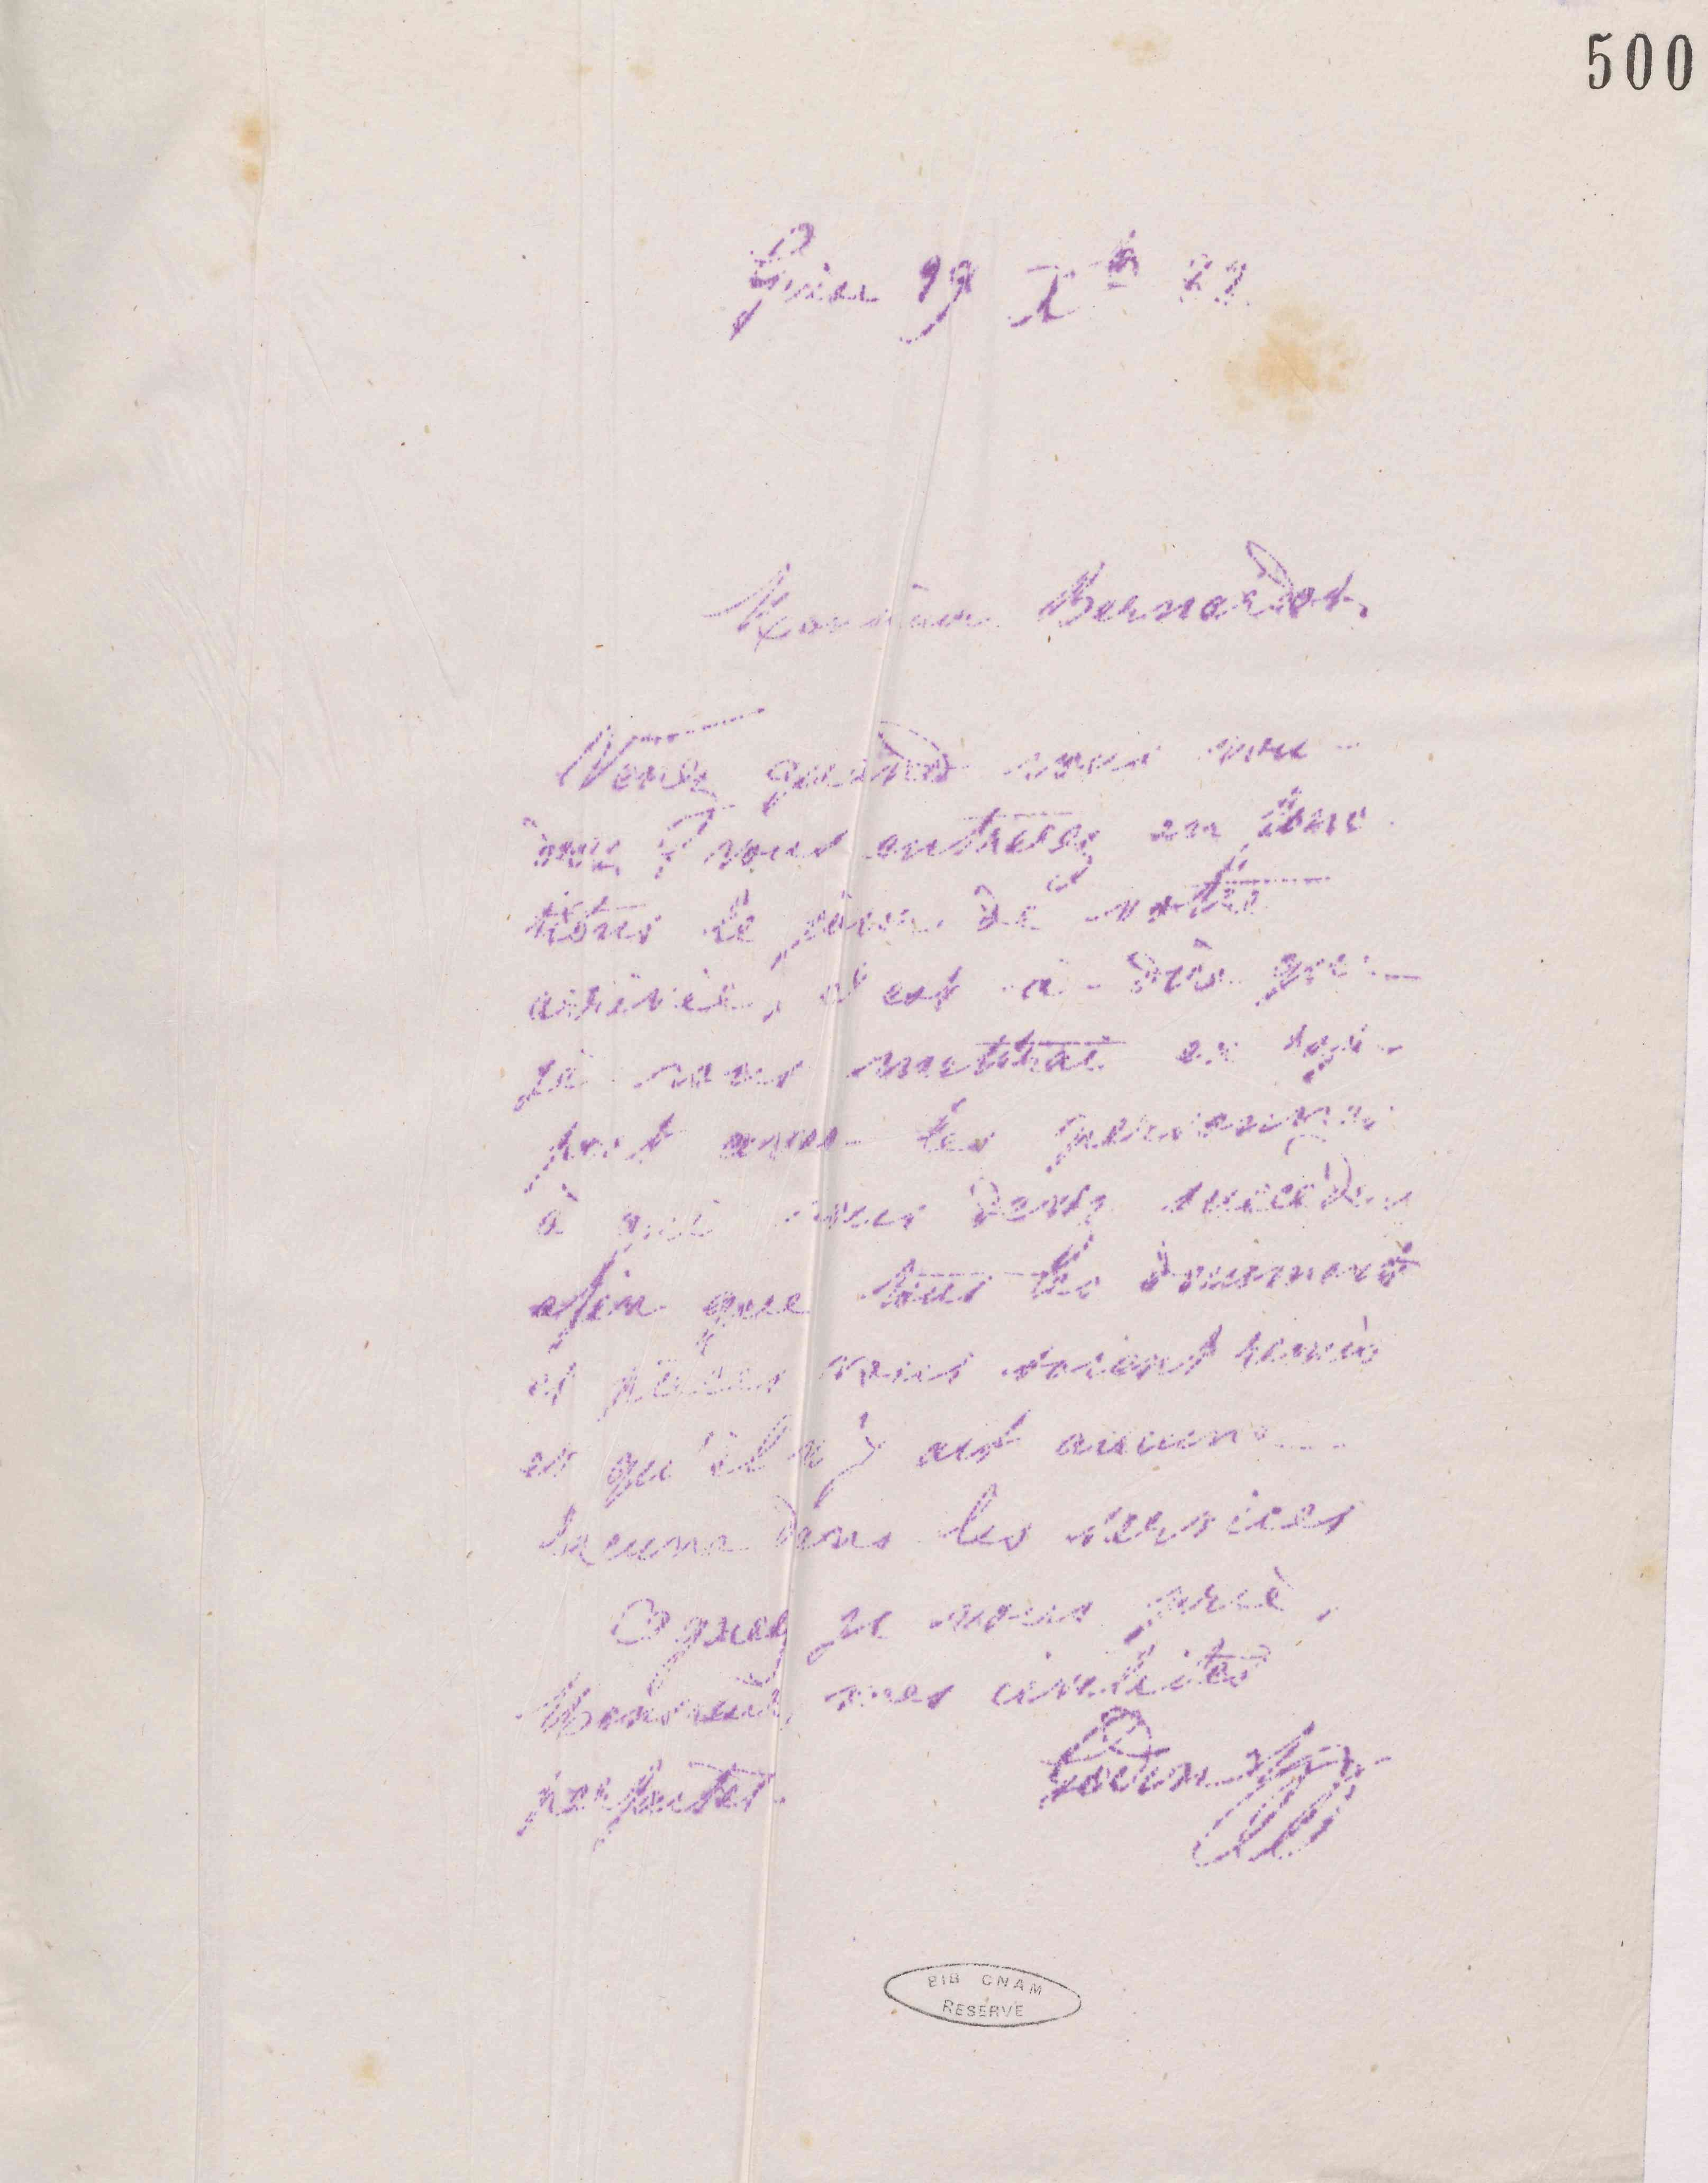 500
Guise 29 Xbre 82
Monsieur Bernardot,
Venez quand vous vou-
drez ; vous entrerez en fonc
tions le jour de votre
arrivée, c'est-à-dire que
je vous mettrai en rap-
port avec les personnes
à qui vous devez succéder
afin que tous les documents
et pièces vous soient remis
et qu'il n'y ait aucune
lacune dans les services
Agréez je vous prie,
Monsieur, mes civilités
parfaites.
Godin
BIB CNAM
RESERVE